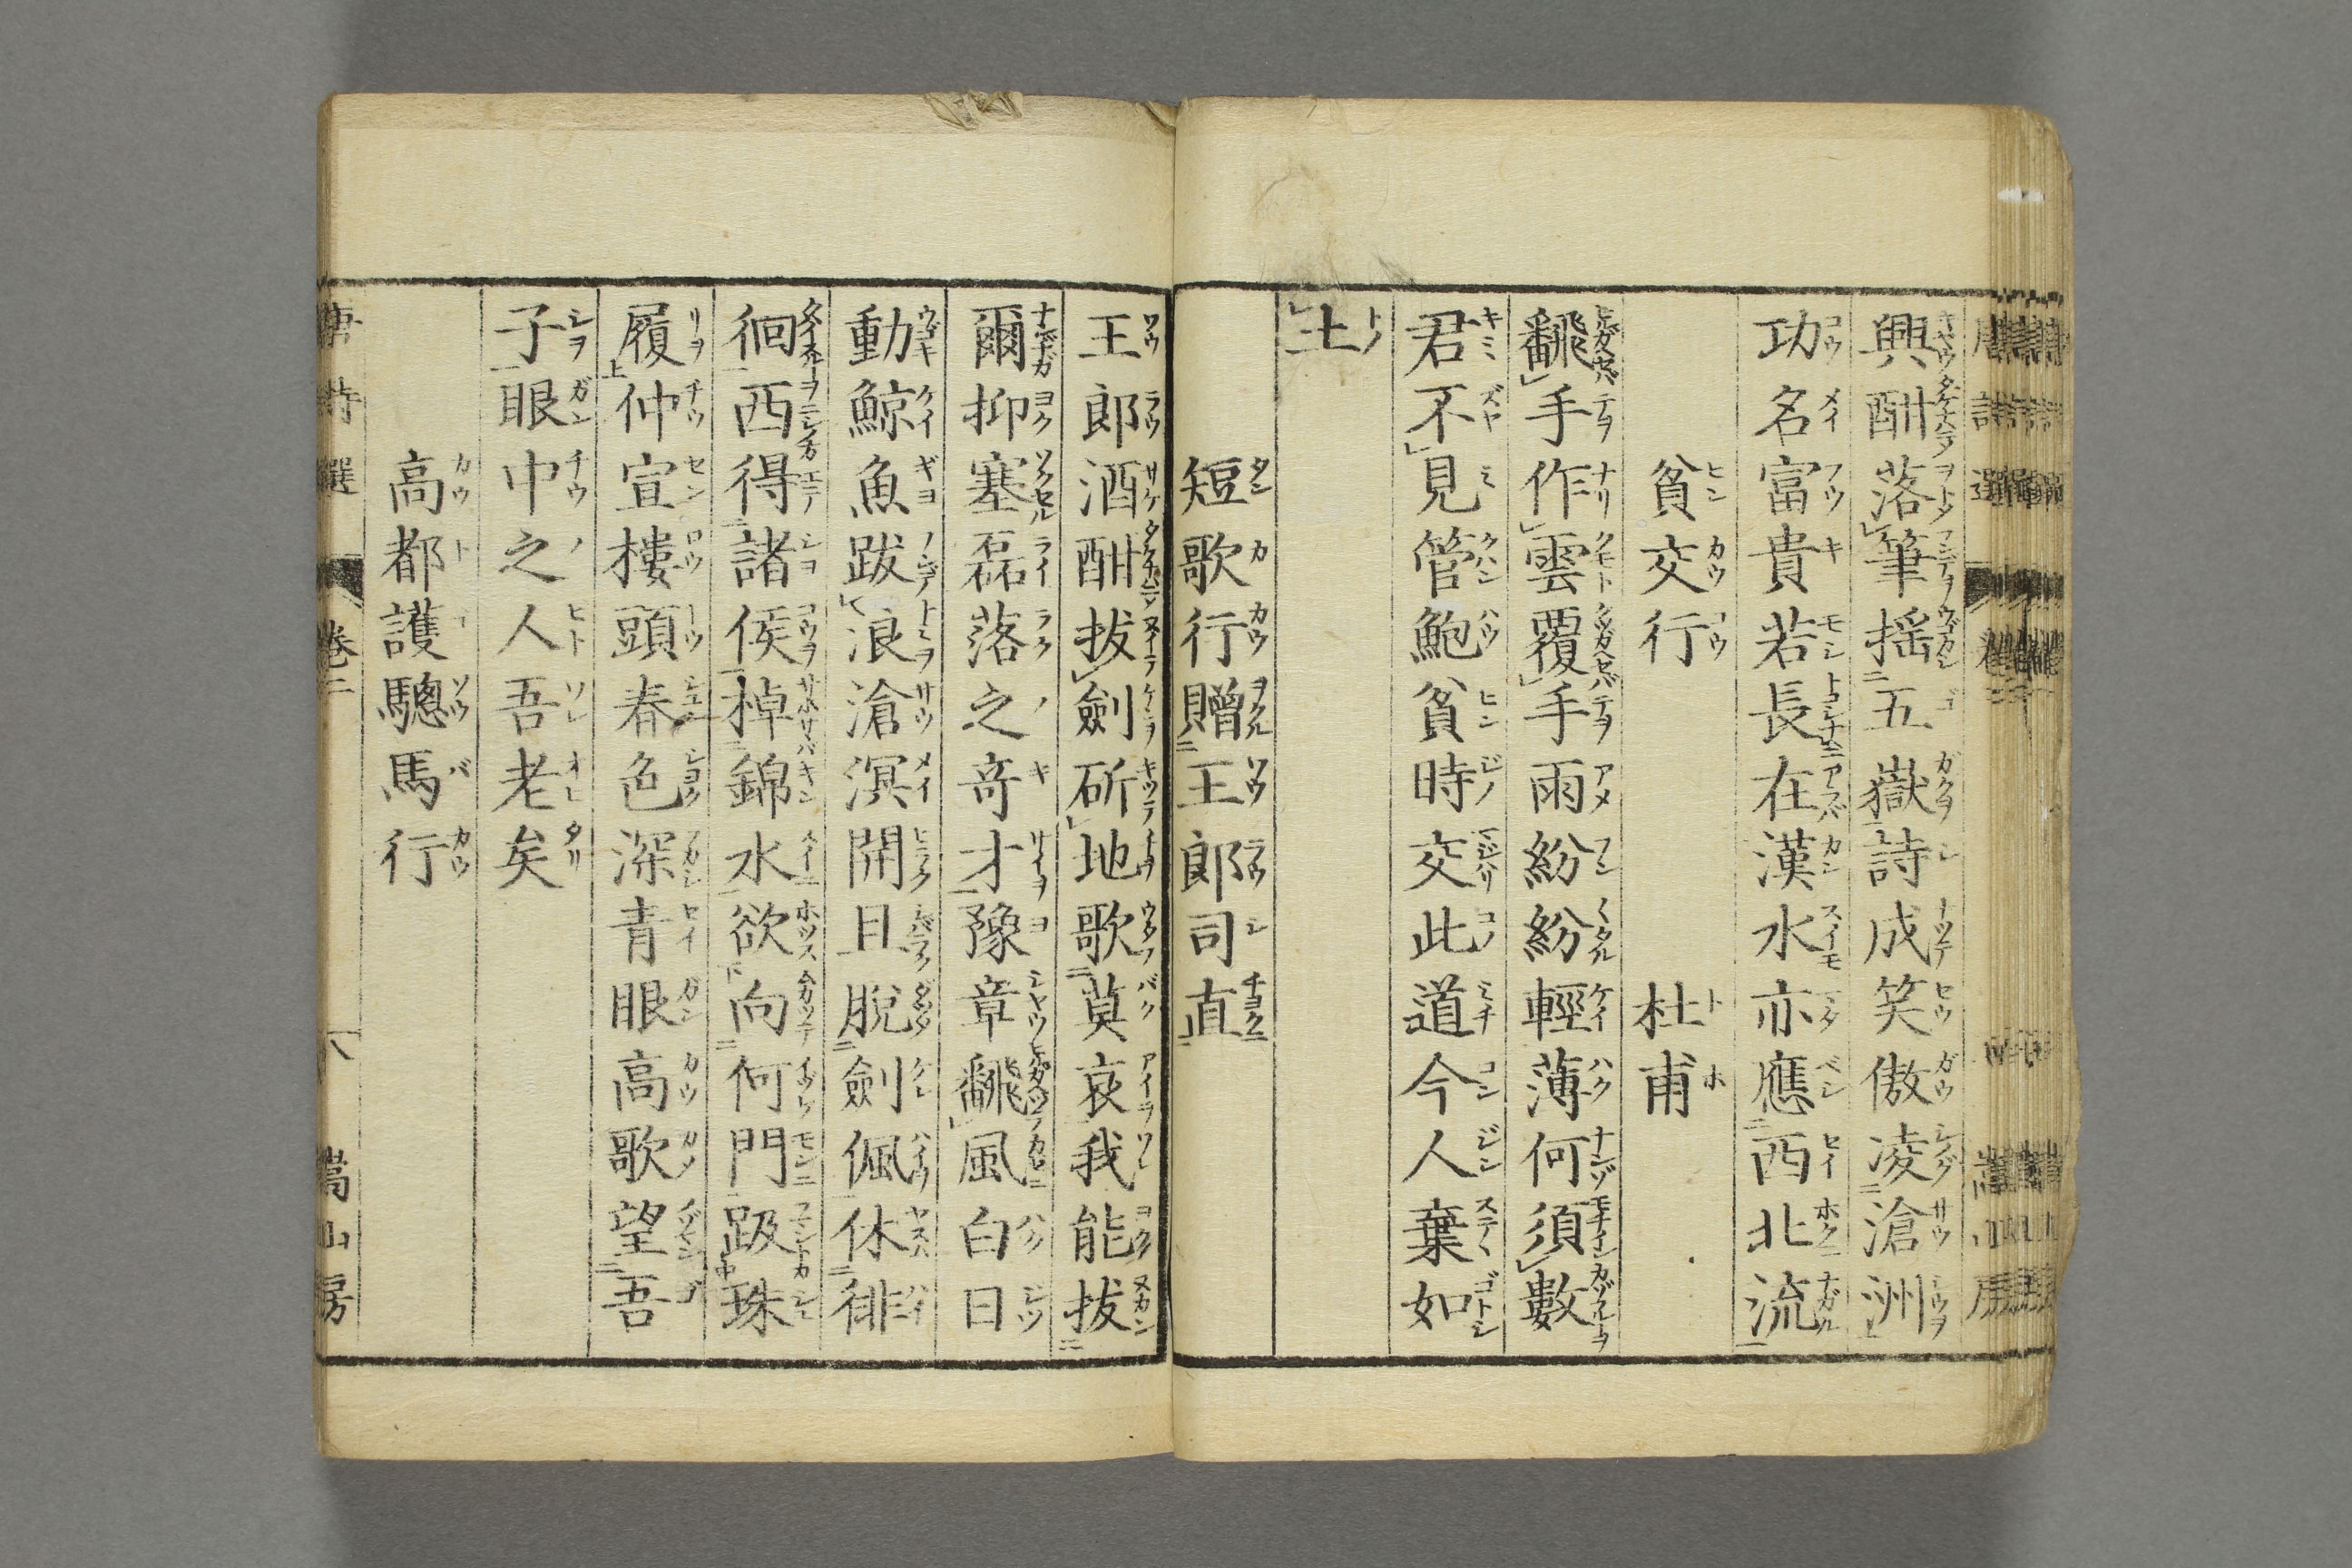 興酣落筆揺五嶽詩成笑傲凌滄洲
功名富貴若長在漢水亦應西北流
貧交行
杜甫
飜手作雲覆手雨紛紛輕薄何須數
君不見管鮑貧時交此道今人棄如
土
短歌行贈王郎司直
王郎酒酣拔劍斫地歌莫哀我能拔
爾抑塞磊落之竒才豫章飜風白日
動鯨魚跋浪滄溟開且脫劍佩休徘
徊西得諸侯棹錦水欲向何門趿珠
履仲宣樓頭春色深青眼高歌望吾
子眼中之人吾老矣
高都護驄馬行
唐詩選
卷二
八
嵩山房